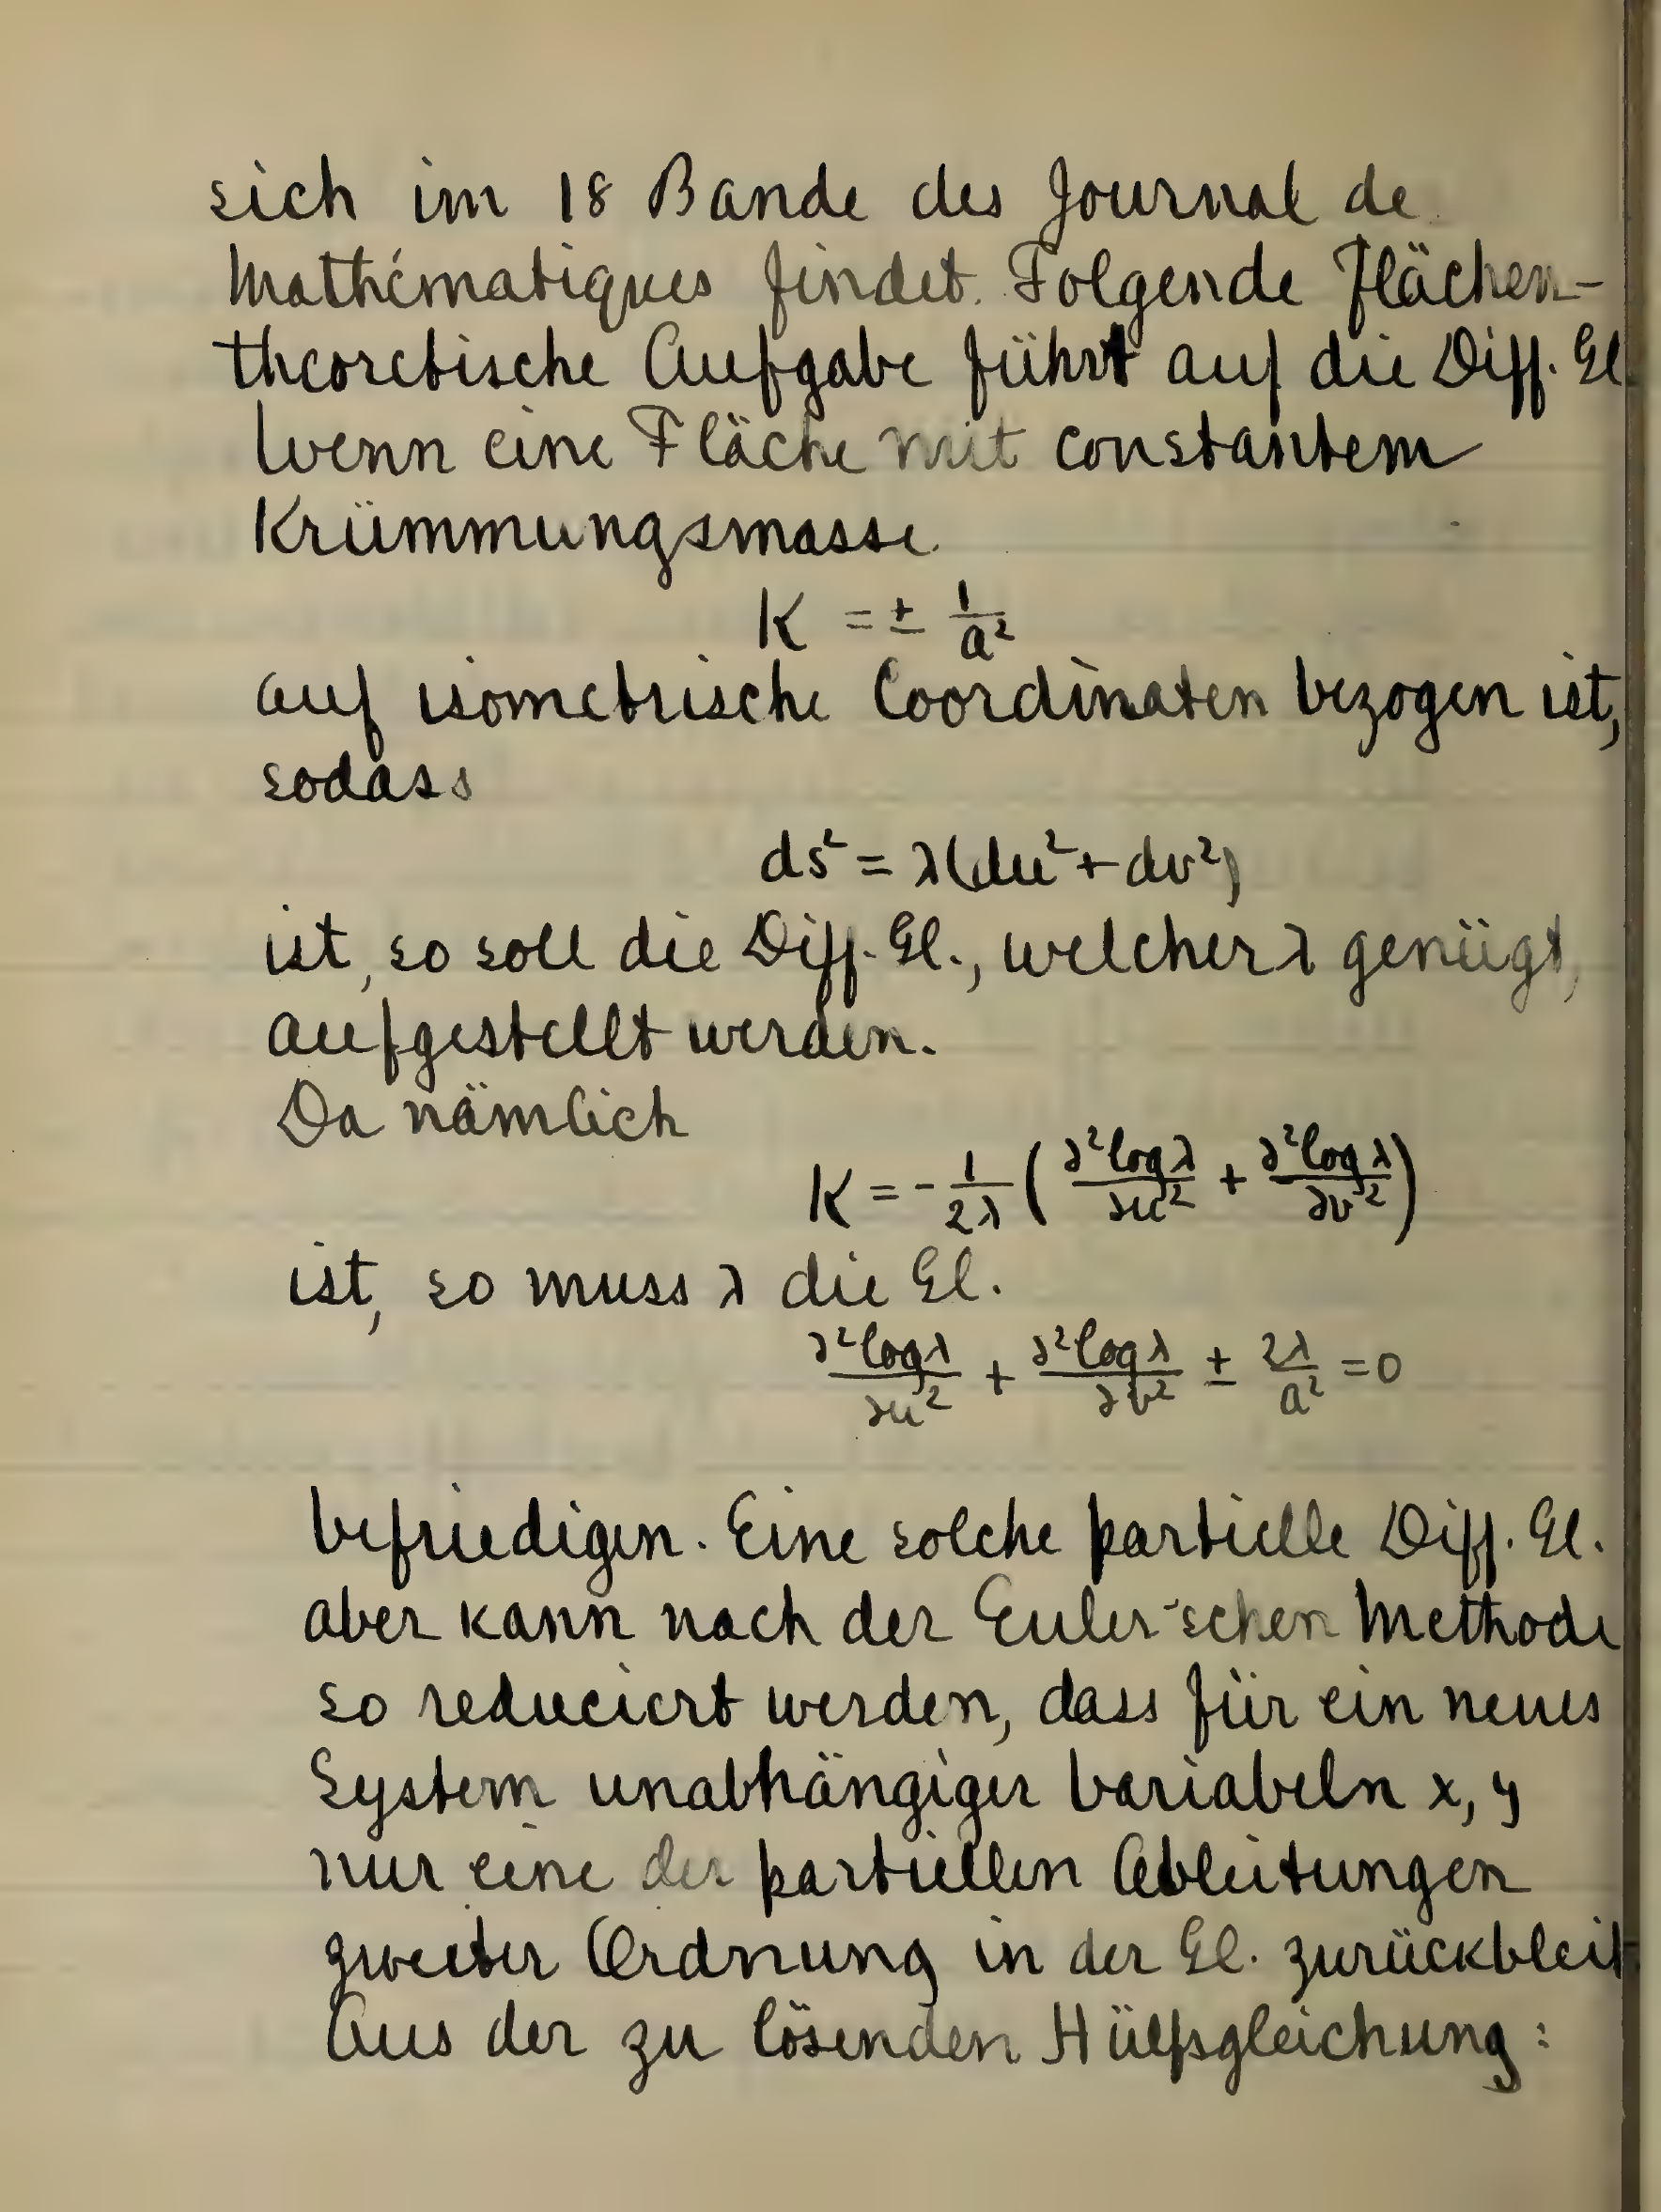 sich im 18 Bande des Journal de
Mathématiques findet. Folgende Flächen-
theoretische Aufgabe führt auf die Diff. Gl.
Wenn eine Fläche mit constantem
Krümmungsmasse
K = ± 1/a²
auf isometrische Coordinaten bezogen ist,
sodass
ds² = λ(du² + dv²)
ist, so soll die Diff. Gl., welcher λ genügt,
aufgestellt werden.
Da nämlich
K = - 1/2λ ( ∂² log λ/∂u² + ∂² log λ/∂v² )
ist, so muss λ die Gl.
∂² log λ/∂u² + ∂² log λ/∂v² ± 2λ/a² = 0
befriedigen. Eine solche partielle Diff. Gl.
aber kann nach der Euler'schen Methode
so reduciert werden, dass für ein neues
System unabhängiger Variabeln x, y
nur eine der partiellen Ableitungen
zweiter Ordnung in der Gl. zurückbleibt
Aus der zu lösenden Hülfsgleichung: